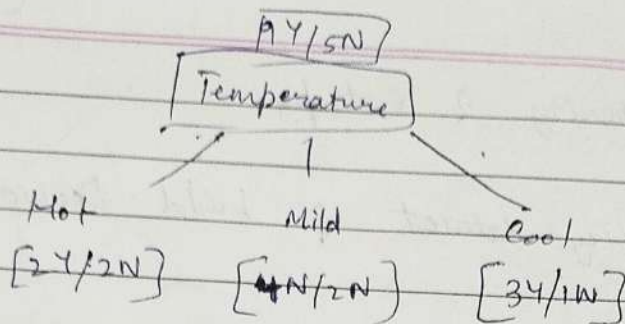 9Y/5N
Temperature
Hot Mild Cool
[2Y/2N] [4N/2N] [3Y/1N]